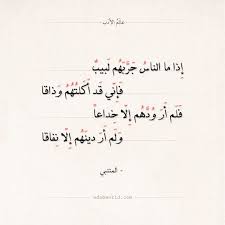 عالم الأدب
إِذا ما الناسُ جَرَّبَهُم لَبيبٌ
فَإِنّي قَد أَكَلتُهُم وَذاقا
فَلَم أَرَ وُدَّهُم إِلّا خِداعاً
وَلَم أَرَ دينَهُم إِلّا نِفاقا
- المتنبي
adabworld.com